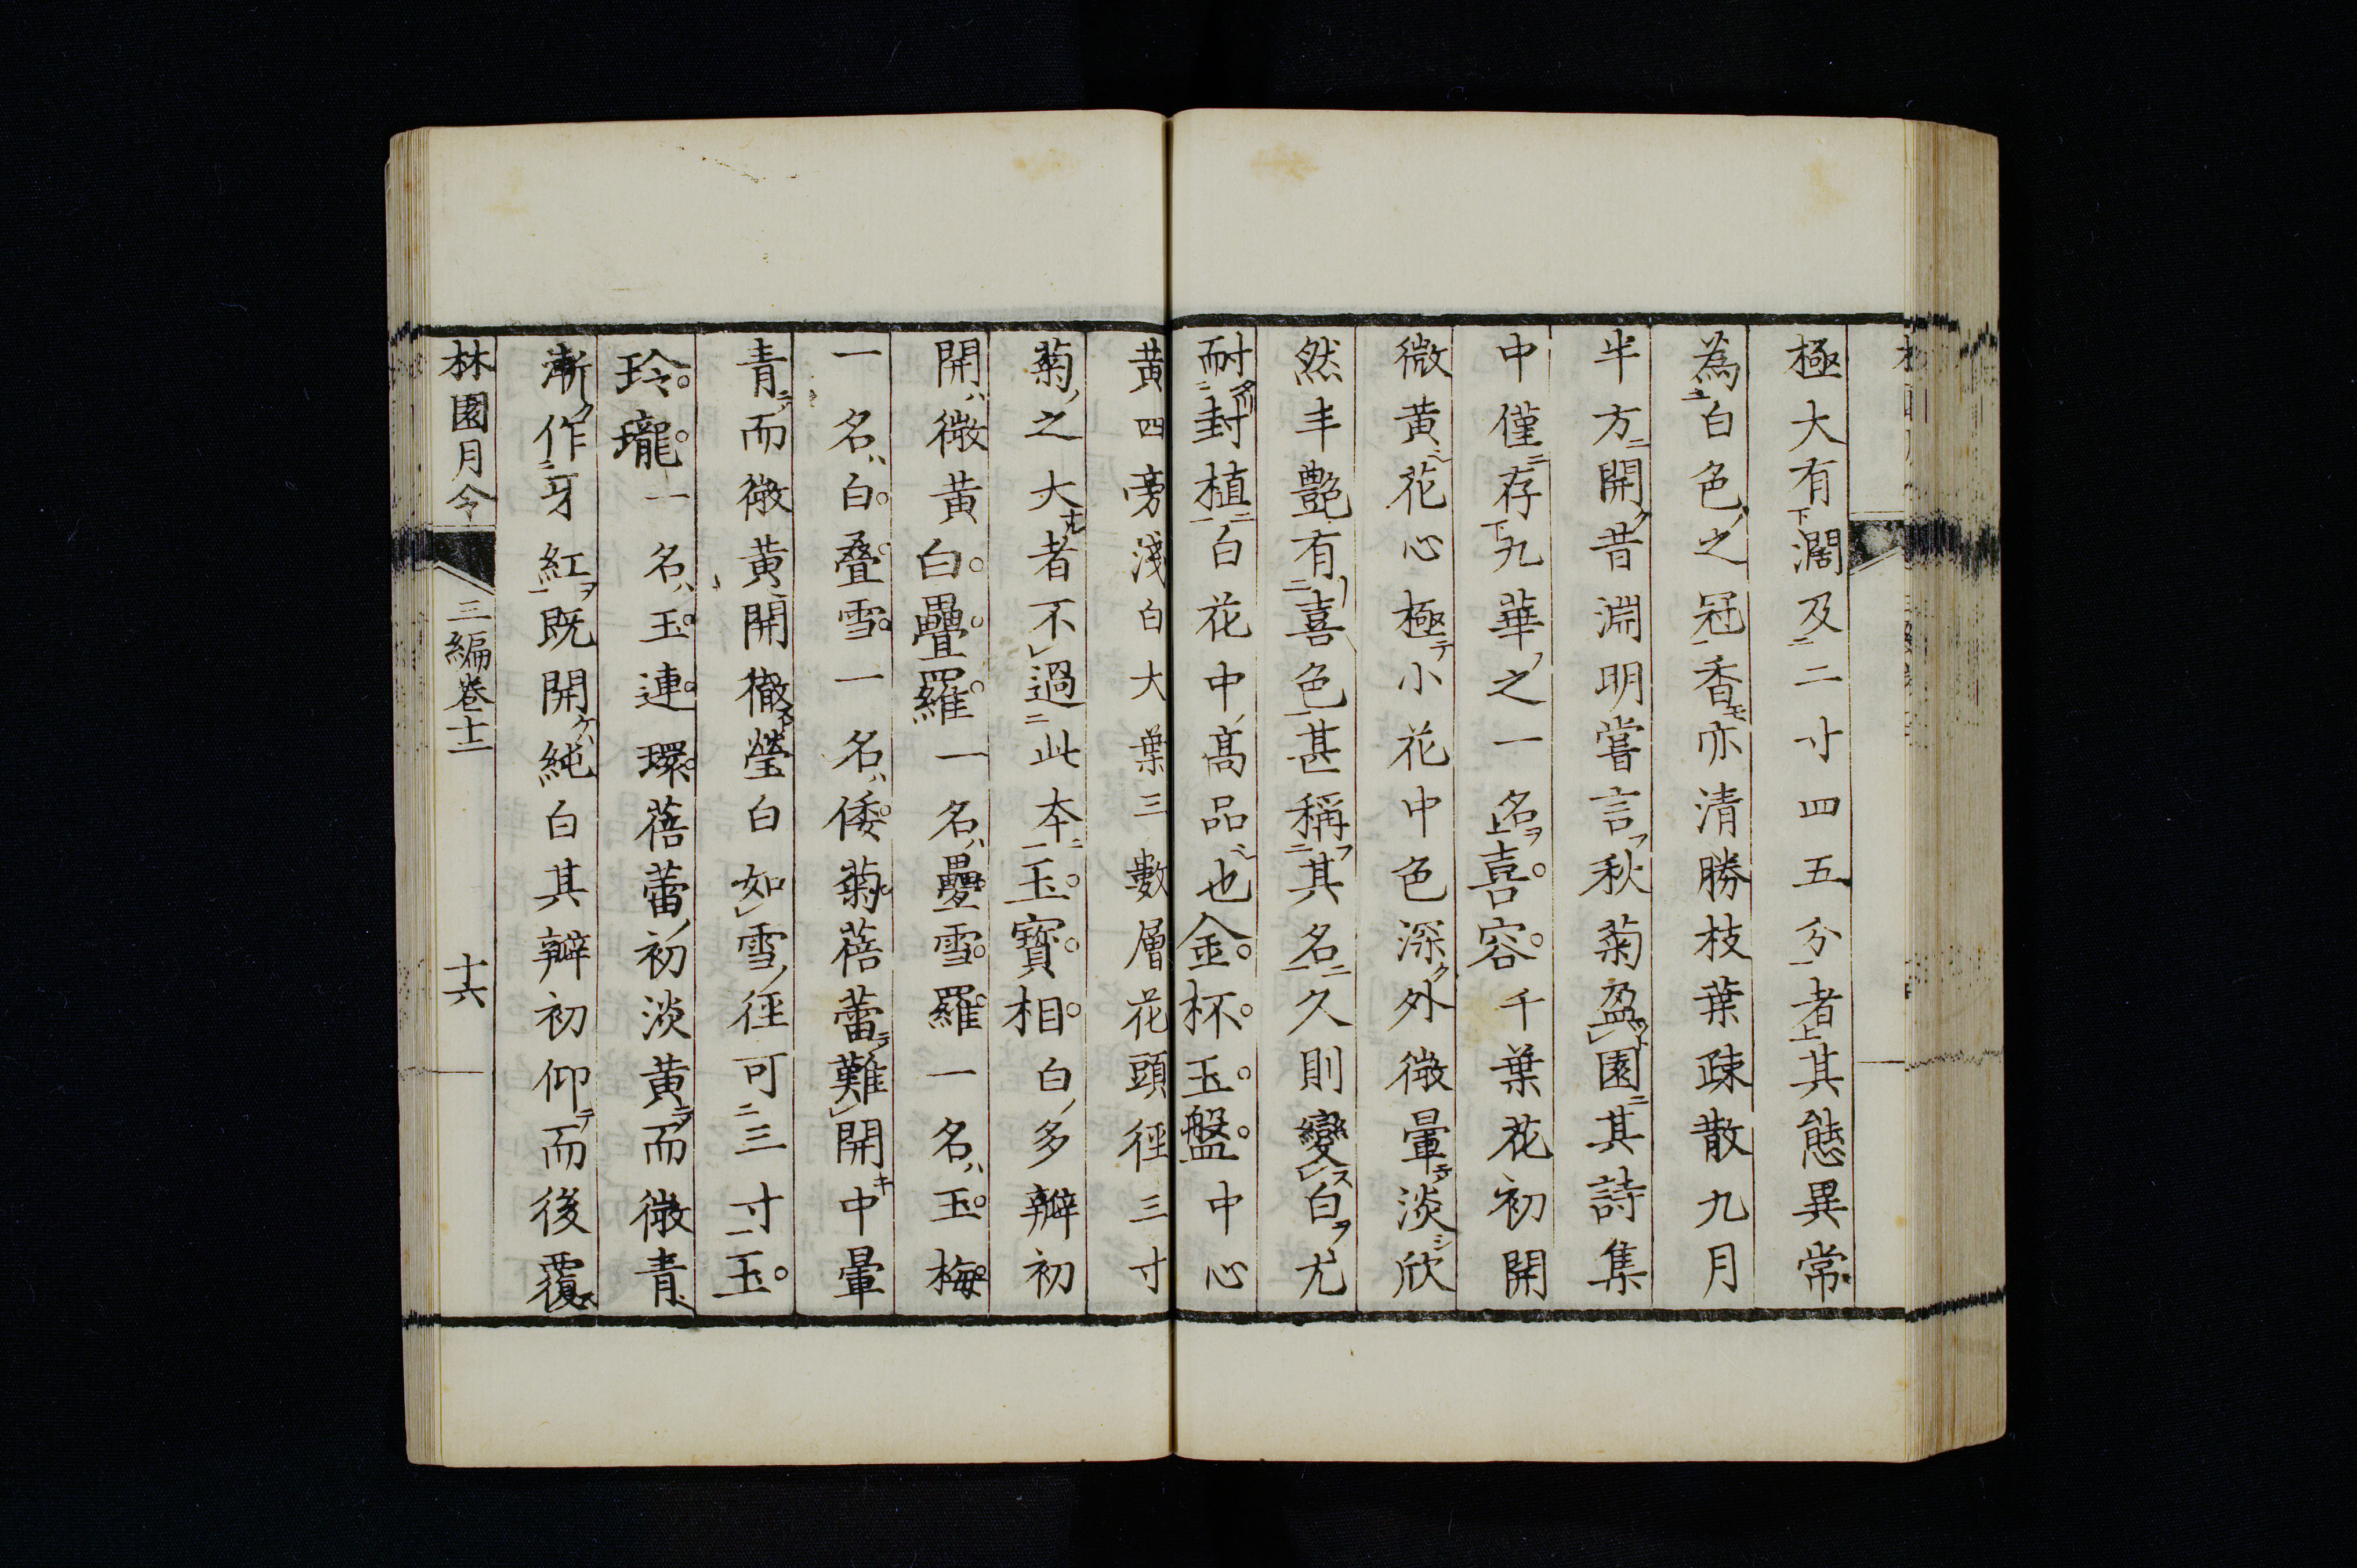 極大有濶及二寸四五分者其態異常
為白色之冠香亦清勝枝葉疎散九月
半方開昔淵明嘗言秋菊盈園其詩集
中僅存九華之一名喜容千葉花初開
微黄花心極小花中色深外微暈淡欣
然丰艶有喜色甚稱其名久則變白尤
耐封植白花中高品也金杯玉盤中心
黄四旁淺白大葉三數層花頭徑三寸
菊之大者不過此本玉寳相白多瓣初
開微黄白疊羅一名疊雪羅一名玉梅
一名白疊雪一名倭菊蓓蕾難開中暈
青而微黄開徹瑩白如雪徑可三寸玉
玲瓏一名玉連環蓓蕾初淡黄而微青
漸作牙紅既開純白其瓣初仰而後覆
林園月令 三編卷十二 十六